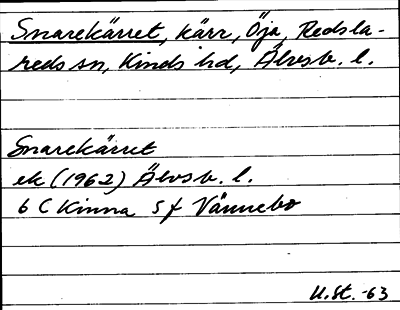 Snarekärret, kärr, Öja, Redsla-
reds sn, Kinds hd, Älvsb. l.
Snarekärret
ek (1962) Älvsb. l.
6 C Kinna 5 f Vännebo
U.St. -63